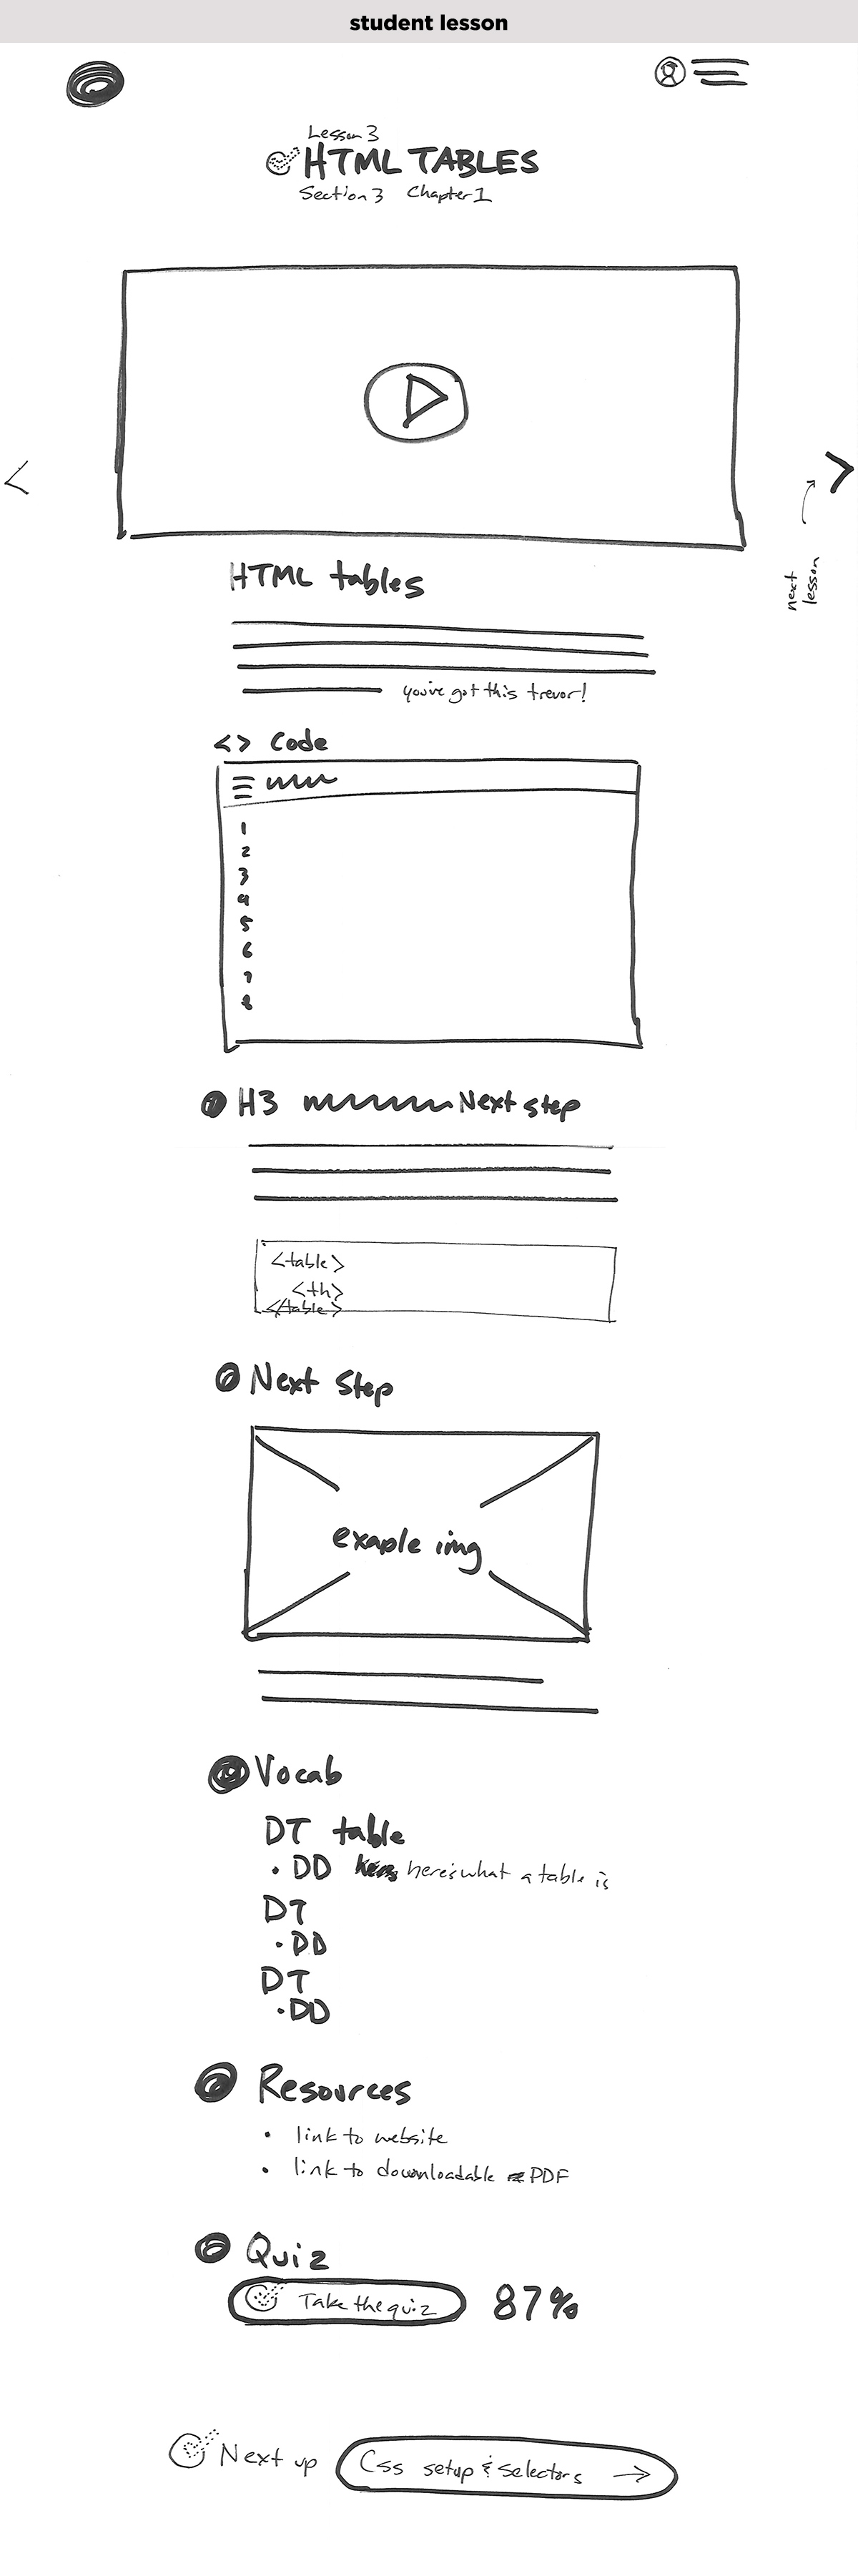 student lesson
Lesson 3
HTML TABLES
Section 3 Chapter 1
HTML tables
next
lesson
you've got this trevor!
<> Code
1
2
3
4
5
6
7
8
H3 Next step
<table>
<th>
</table>
Next Step
exaple img
Vocab
DT table
• DD here's what a table is
DT
• DD
DT
• DD
Resources
• link to website
• link to downloadable PDF
Quiz
Take the quiz 87%
Next up Css setup & selectors →